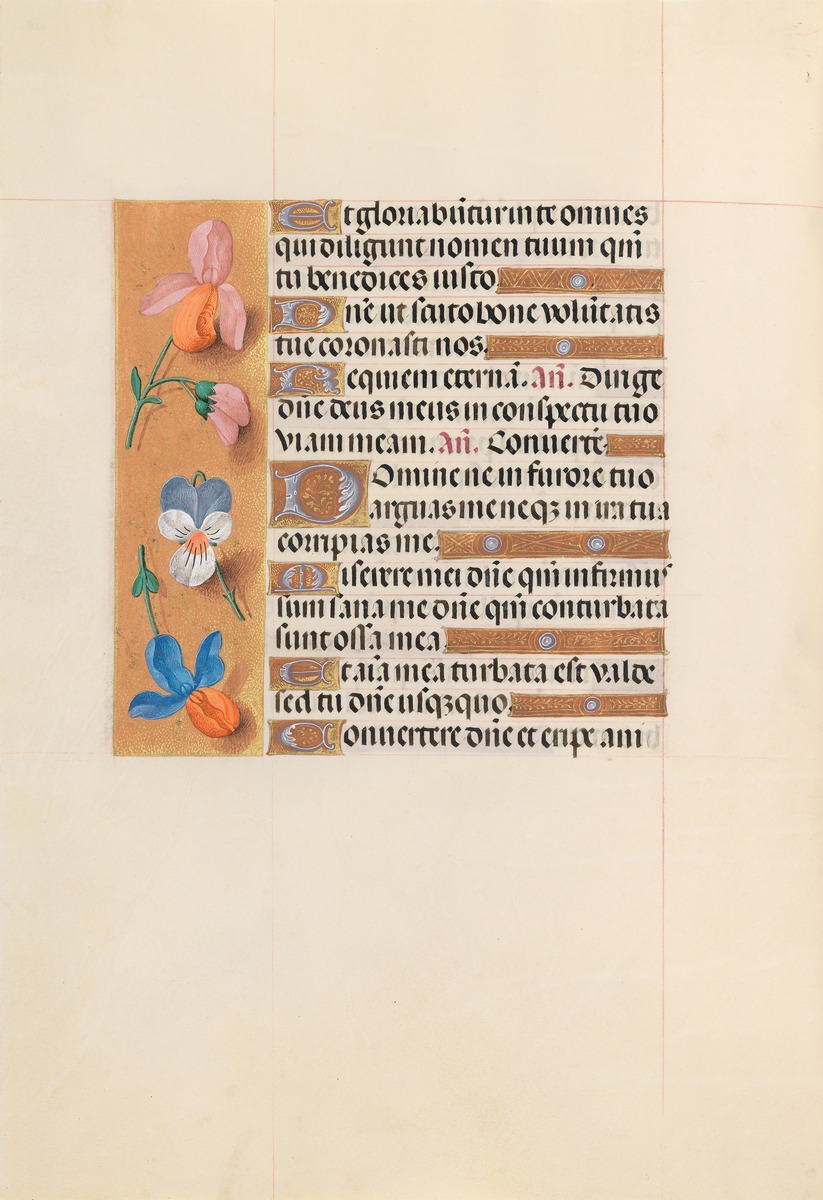 Et gloriabūtur in te omnes
qui diligunt nomen tuum qm̄
tu benedices iusto
Dn̄e ut scuto bone volūtatis
tue coronasti nos.
Requiem eternā. Añ. Dirige
dn̄e deus meus in conspectu tuo
viam meam. Añ. Conuerte.
Domine ne in furore tuo
arguas me neqȝ in ira tua
corripias me.
Miserere mei dn̄e qm̄ infirmus
sum sana me dn̄e qm̄ conturbata
sunt ossa mea
Et aīa mea turbata est valde
sed tu dn̄e usqȝquo.
Conuertere dn̄e et eripe ani